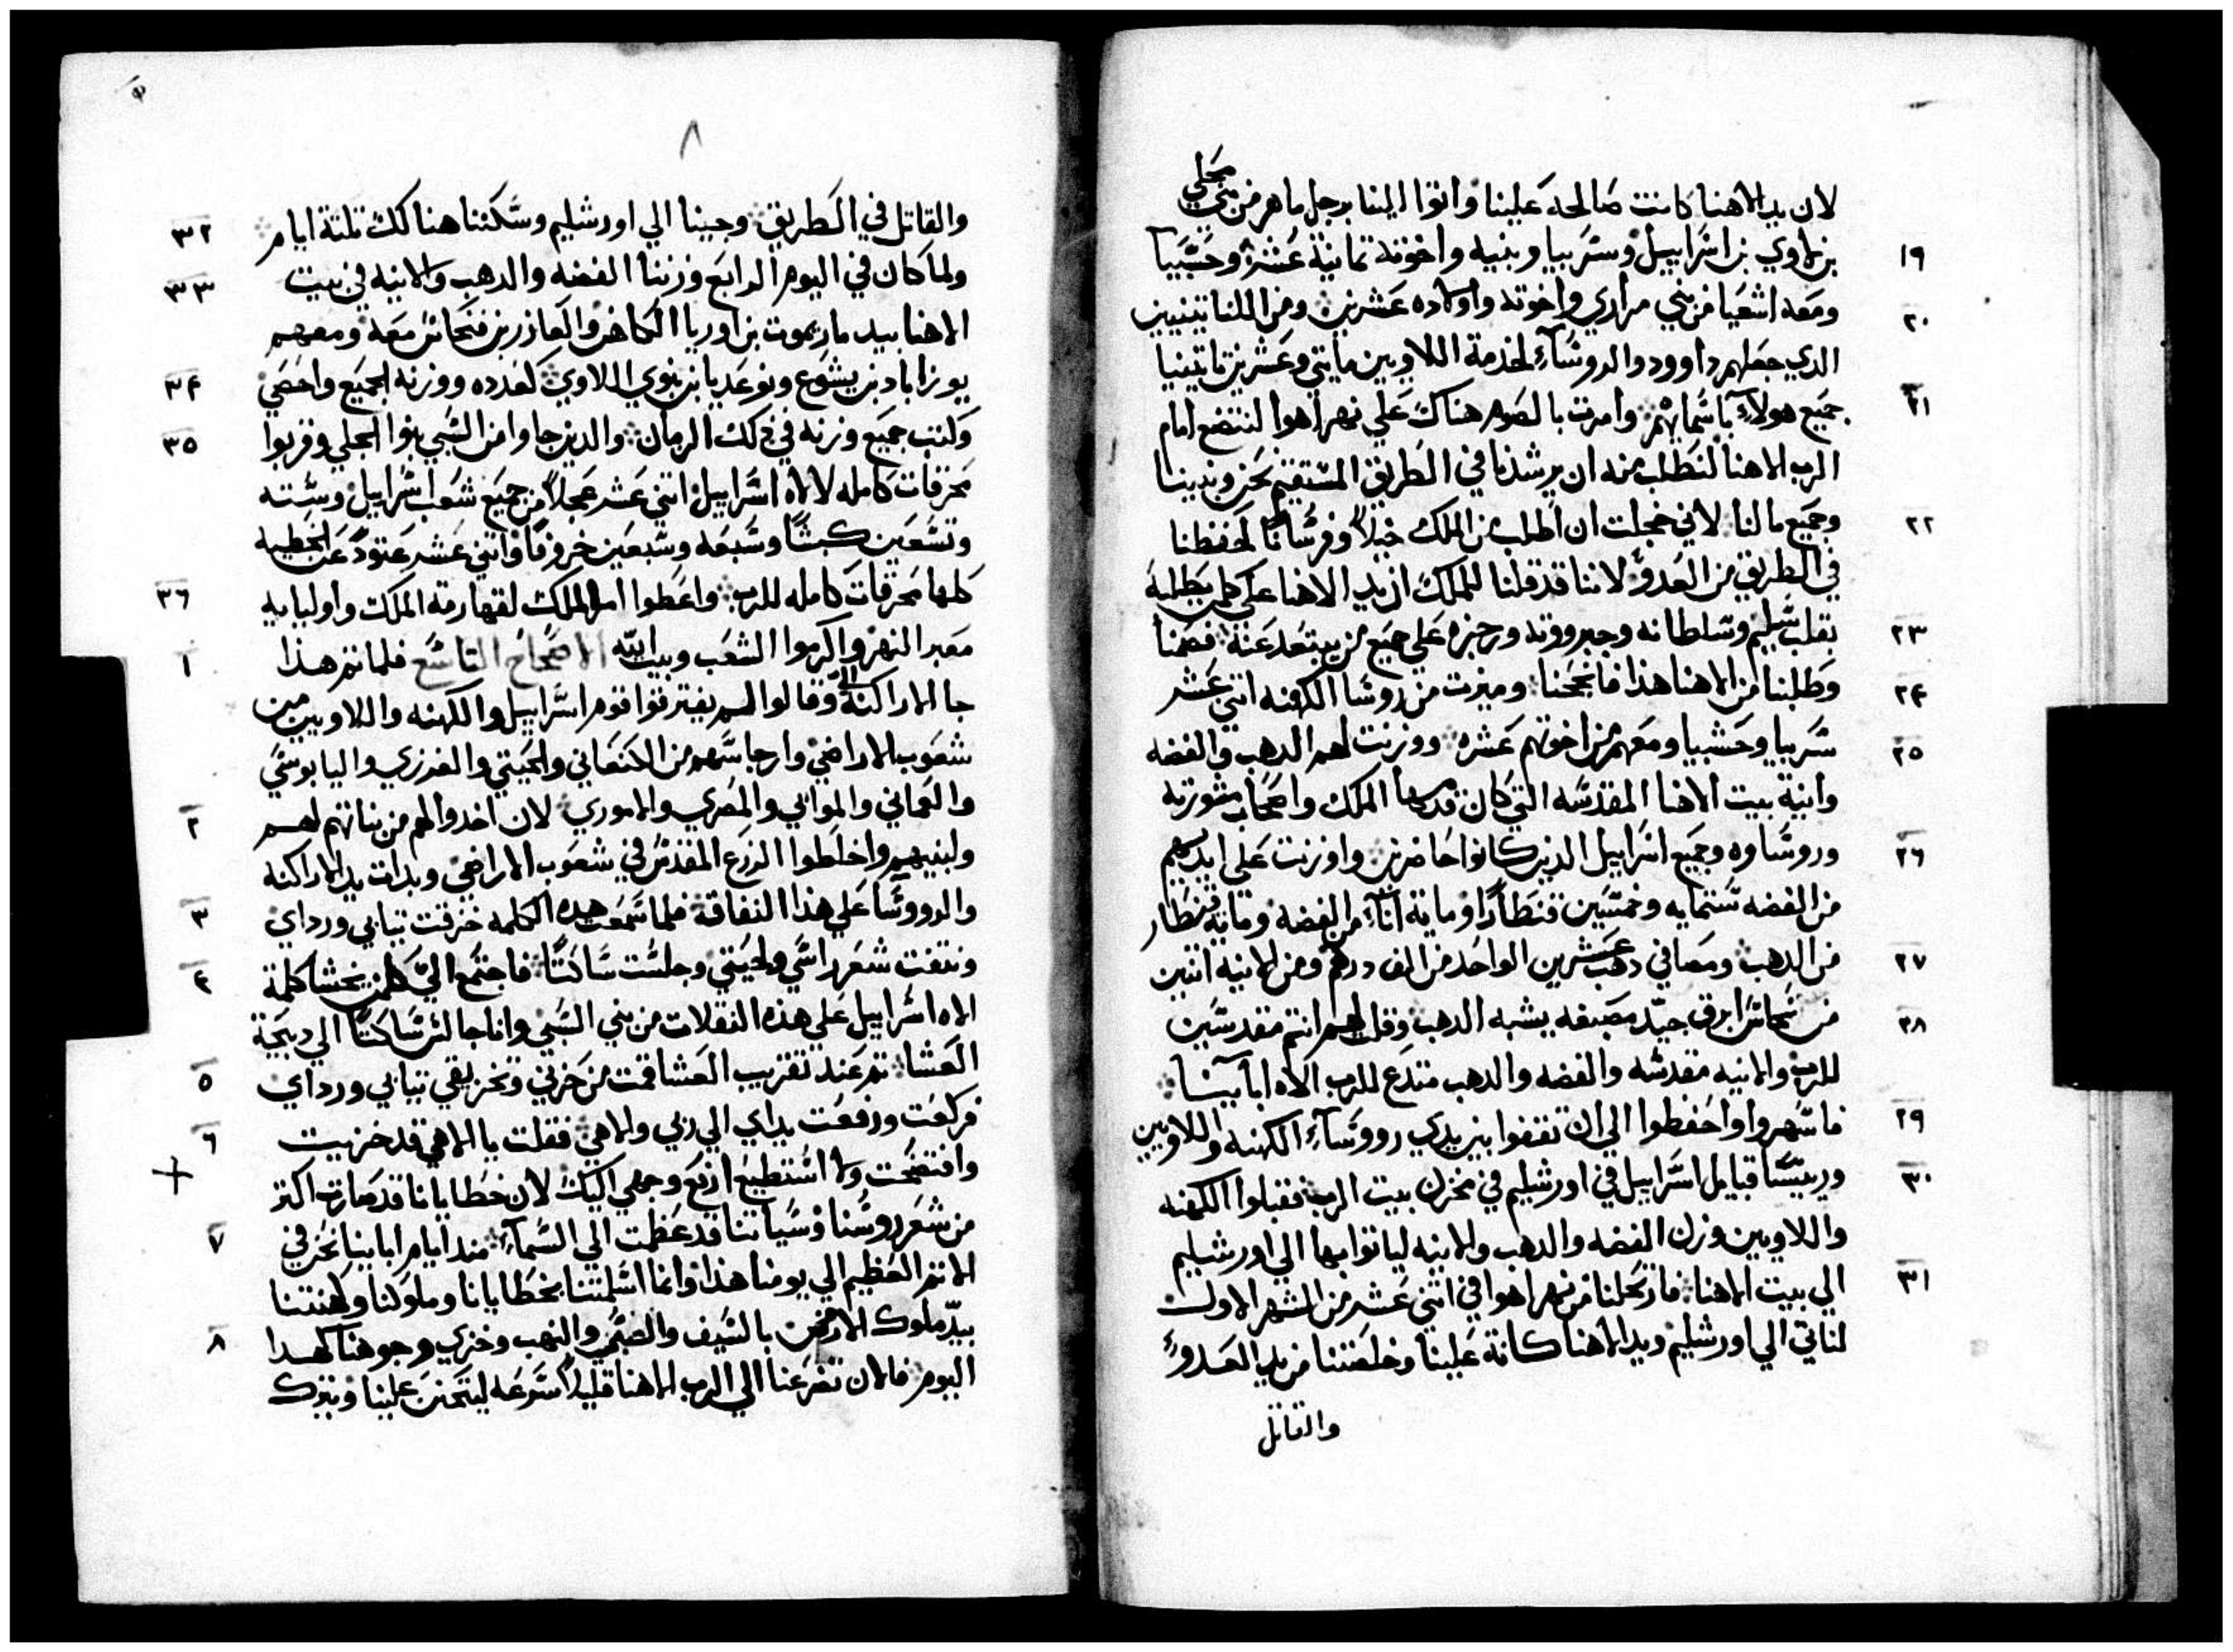 لان يد الاهنا كانت صالحه علينا واتوا الينا برجل ماهر من بني محلي
١٩ بن لاوي بن اسراييل وسربيا وبنيه واخوته تمانية عشر وحشبيا
٢٠ ومعه اشعيا من بني مراري واخوته واولاده عشرين ومن الناتينيين
الدي جعلهم داوود والروساء لخدمة اللاويين مايتي وعشرين ناتينيا
٢١ جميع هولاء باسمايهم وامرت بالصوم هناك علي نهر اهوا لنتضع امام
الرب الاهنا لنطلب منه ان يرشدنا في الطريق المستقيم نحن وبنينا
٢٢ وجميع مالنا لاني خجلت ان اطلب من الملك خيلا وفرسانا لحفظنا
في الطريق من العدو لاننا قد قلنا للملك ان يد الاهنا علي كلمن يطلبه
٢٣ بقلب سليم وسلطانه وجبرووته ورجزه علي جميع من يبتعد عنه فصمنا
٢٤ وطلبنا من الاهنا هذا فانجحنا وميزت من روسا الكهنه اتني عشر
٢٥ سربيا وحشبيا ومعهم من اخوتهم عشره ووزنت لهم الدهب والفضه
وانية بيت الاهنا المقدسه التي كان قدسها الملك واصحاب مشورته
٢٦ وروساوه وجميع اسراييل الدين كانوا حاضرين واوزنت علي ايديهم
من الفضه ستمايه وخمسين قنطارا ومايه اناء من الفضه ومايه قنطار
٢٧ من الدهب ومصافي دهب عشرين الواحد من الف درهم ومن الانيه اتنين
٢٨ من نحاس ابرق جيد مصبغه يشبه الدهب وقلت لهم انتم مقدسين
للرب والانيه مقدسه والفضه والدهب متدع للرب الاه اباينا
٢٩ فاسهروا واحفظوا الي ان تقفوا بين يدي رووساء الكهنه واللاويين
٣٠ ورييسا قبايل اسراييل في اورشليم في مخزن بيت الرب فقبلوا الكهنه
واللاويين وزن الفضه والدهب والانيه لياتوا بها الي اورشليم
٣١ الي بيت الاهنا فارتحلنا من نهر اهوا في اتني عشر من الشهر الاول
لناتي الي اورشليم ويد الاهنا كانة علينا وخلصتنا من يد العدو
والقاتل
٨
٣٢ والقاتل في الطريق وجينا الي اورشليم وسكننا هنا كك تلتة ايام
٣٣ ولما كان في اليوم الرابع وزننا الفضه والدهب والانيه في بيت
الاهنا بيد ماريموت بن اوريا الكاهن والعازر بن فنحاس معه ومعهم
٣٤ يوزاباد بن يشوع ونوعديا بن بنوي اللاوي كعدده ووزنه الجميع واحصي
٣٥ وكتب جميع وزنه في دلك الزمان والدين جاوا من السبي بنوا الجلي وقربوا
محرقات كامله لالاه اسراييل اتني عشر عجلا من جميع شعب اسراييل وستة
وتسعين كبشا وسبعه وسبعين خروفا واتني عشر عتودا عن الخطيه
٣٦ كلها محرقات كامله للرب واعطوا امر الملك لقهارمة الملك واوليايه
١ معبر النهر واكرموا الشعب وبيت الله الاصحاح التاسع فلما تم هذا
جا الاراكنه الي وقالوا لم يفترقوا قوم اسراييل والكهنه واللاويين من
شعوب الاراضي وارجاسهم من الكنعاني والحيتي والفرزي واليابوسي
٢ والعماني والموابي والمصري والاموري لان اخدوا لهم من بناتهم لهم
ولبنيهم واخلطوا الزرع المقدس في شعوب الاراضي وبدات يد الاراكنه
٣ والرووسا علي هذا النفاقه فلما سمعت هده الكلمه خرقت تيابي ورداي
٤ ونتفت شعر راسي ولحيتي وجلست ساكتا فاجتمع الي كلمن يخشا كلمة
الاه اسراييل علي هذه النقلات من بني السبي وانا جالس ساكتا الي دبيحة
٥ العشا تم عند تقريب العشا قمت من حزني وتخريقي تيابي ورداي
٦ فركعت ورفعت يداي الي ربي والاهي فقلت يا الاهي قد خزيت
وافتضحت ولا استطيع ارفع وجهي اليك لان خطايانا قد صارت اكتر
٧ من شعر روسنا وسياتنا قد عظمت الي السماء مند ايام اباينا نحن في
الاتم العظيم الي يومنا هذا وانما اسلمتنا بخطايانا وملوكنا وكهنتنا
٨ بيد ملوك الارض بالسيف والسبي والنهب وخزي وجوهنا كهدا
اليوم فالان تضرعنا الي الرب الاهنا قليلا سرعه ليتحنن علينا ويترك